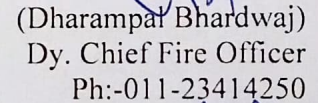 (Dharampal Bhardwaj)
Dy. Chief Fire Officer
Ph:-011-23414250